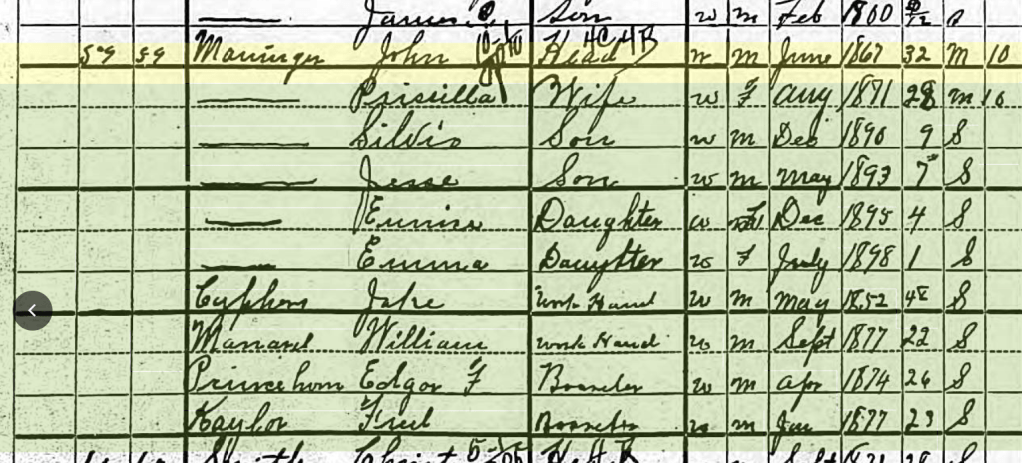 James Son w m Feb 1860
59 59 John Head w m June 1867 32 M 10
Priscilla Wife w F Aug 1871 28 M 10
Silvis Son w m Dec 1890 9 S
Jesse Son w m May 1893 7 S
Daughter w F Dec 1895 4 S
Emma Daughter w F July 1898 1 S
Jake Work Hand w m May 1852 48 S
William Work Hand w m Sept 1877 22 S
Princehorn Edgar F Boarder w m Apr 1874 26 S
Kaylor Fred Boarder w m Jan 1877 23 S
Smith Christ